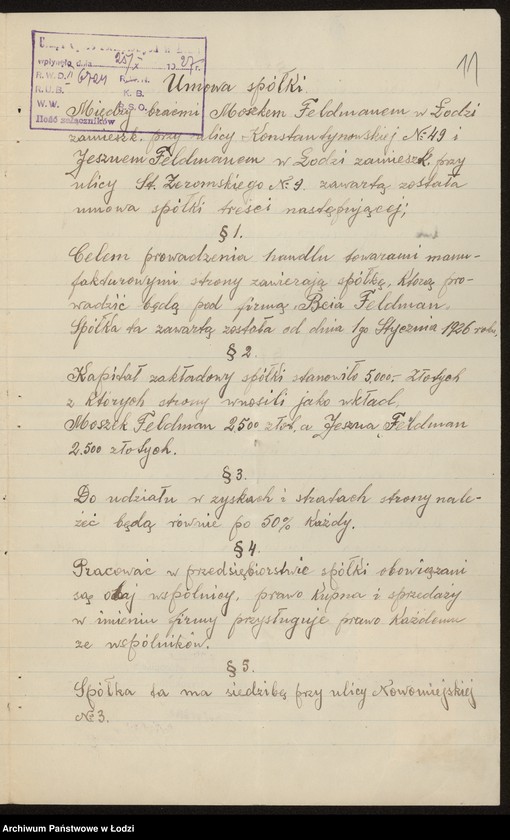 wpłynęło dnia 25/X 1927 r.
R.W.D.
R.U.B. K. B.
W.W. R.S.O.
Ilość załączników
11
Umowa spółki
Między braćmi Moszkem Feldmanem w Łodzi
zamieszk. przy ulicy Konstantynowskiej № 49 i
Jeszuem Feldmanem w Łodzi zamieszk. przy
ulicy St. Żeromskiego № 9. zawartą została
umowa spółki treści następującej;
§ 1.
Celem prowadzenia handlu towarami manu-
fakturowymi strony zawierają spółkę, którą pro-
wadzić będą pod firmą „Bcia Feldman.
Spółka ta zawartą została od dnia 1go Stycznia 1926 roku,
§ 2.
Kapitał zakładowy spółki stanowiło 5.000,- Złotych
z których strony wnosili jako wkład.
Moszek Feldman 2500 złot. a Jeszua Feldman
2.500 złotych.
§ 3.
Do udziału w zyskach i stratach strony nale-
żeć będą równie po 50% każdy.
§ 4.
Pracować w przedsiębiorstwie spółki obowiązani
są obaj wspólnicy, prawo kupna i sprzedaży
w imieniu firmy przysługuje prawo każdemu
ze wspólników.
§ 5.
Spółka ta ma siedzibę przy ulicy Nowomiejskiej
№ 3.
Archiwum Państwowe w Łodzi